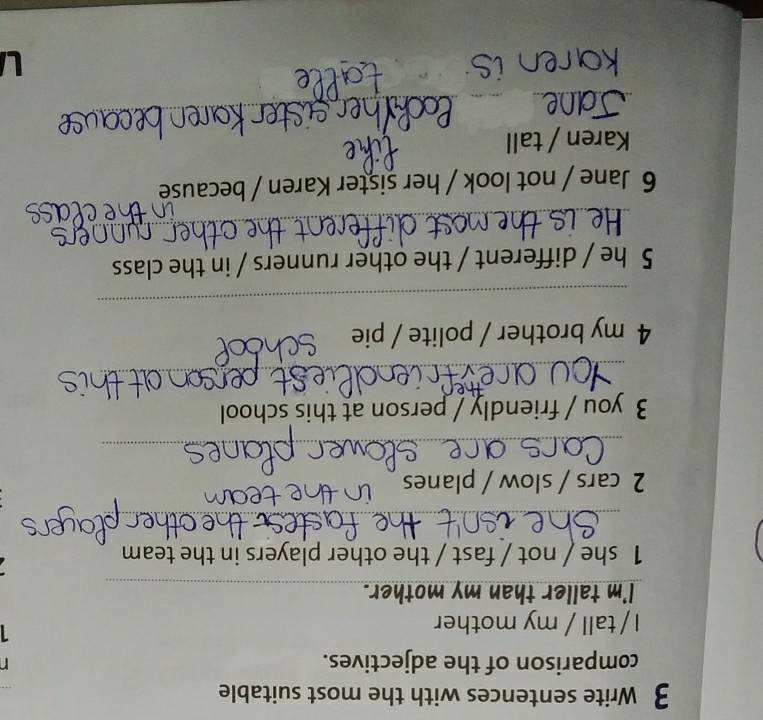 3 Write sentences with the most suitable
comparison of the adjectives.
I / tall / my mother
I'm taller than my mother.
1 she / not / fast / the other players in the team
She isn't the fastest the other players
in the team
2 cars / slow / planes
Cars are slower planes
3 you / friendly / person at this school
You are the friendliest person at this
school
4 my brother / polite / pie
5 he / different / the other runners / in the class
He is the most different the other runners
in the class
6 Jane / not look / her sister Karen / because
Karen / tall
like
Jane look her sister Karen because
Karen is talle